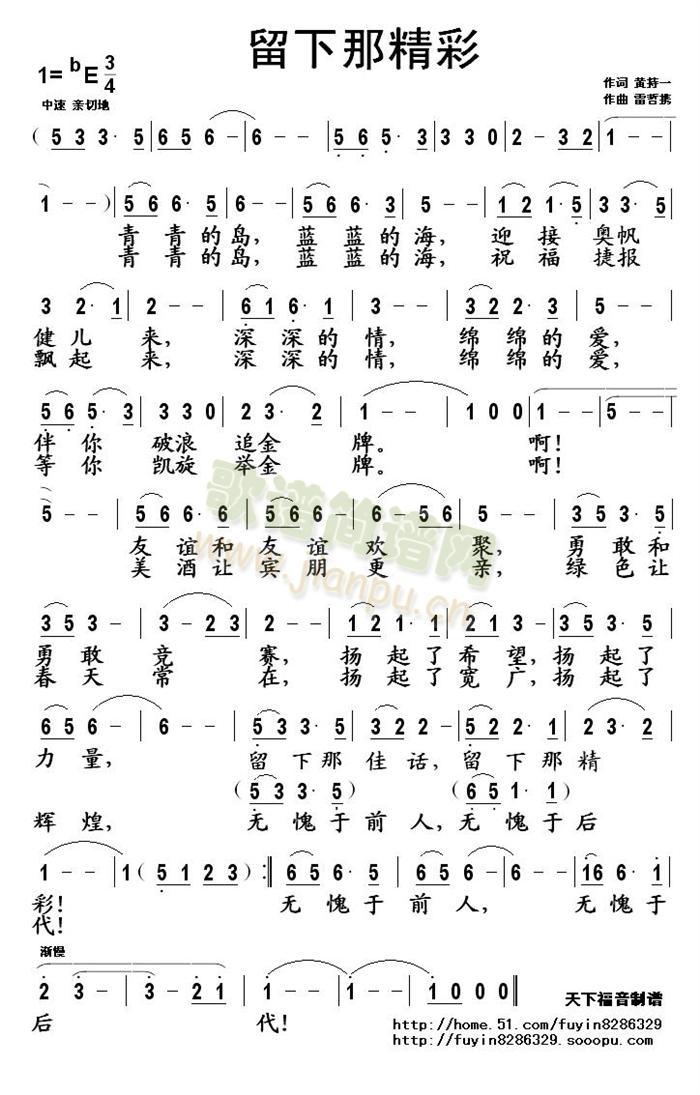 留下那精彩
1= ᵇE 3/4
作词 黄持一
作曲 雷哲携
中速 亲切地
( 5 3 3· 5 | 6 5 6 5 6 | 6 - - | 5 6 5· 3 | 3 3 0 | 2 - 3 2 | 1 - - |
1 - - ) | 5 6 6· 5 | 6 - - | 5 6 6· 3 | 5 - - | 1 2 1· 5 | 3 3· 5 |
青青的岛，蓝蓝的海，迎接奥帆
青青的岛，蓝蓝的海，祝福捷报
3 2· 1 | 2 - - | 6 1 6· 1 | 3 - - | 3 2 2· 3 | 5 - - |
健儿来，深深的情，绵绵的爱，
飘起来，深深的情，绵绵的爱，
5 6 5· 3 | 3 3 0 | 2 3· 2 | 1 - - | 1 0 0 | 1 - - | 5 - - |
伴你破浪追金牌。啊！
等你凯旋举金牌。啊！
歌谱简谱网
www.jianpu.cn
5 - - | 5 6 6· 6 | 5 6 6· | 6 - 5 6 | 5 - - | 3 5 3· 5 |
友谊和友谊欢聚，勇敢和
美酒让宾朋更亲，绿色让
3 5 3 - | 3 - 2 3 | 2 - - | 1 2 1· 1 | 2 1 3 - | 3 5 3· 5 |
勇敢竞赛，扬起了希望，扬起了
春天常在，扬起了宽广，扬起了
6 5 6 - | 6 - - | 5 3 3 5· | 3 2 2 - | 5 2 2· 1 | 2 3· 2 |
力量，留下那佳话，留下那精
( 5 3 3· 5 ) ( 6 5 1· 1 )
辉煌，无愧于前人，无愧于后
1 - - | 1 ( 5 1 2 3 ) :‖ 6 5 6· 5 | 6 5 6 - | 6 - - | 1 6 6· 1 |
彩！无愧于前人，无愧于
代！
渐慢
2 - 3 | 3 - 3· | 2 - - | 1 - - | 1 - - | 1 0 0 0 ‖
后代！
天下福音制谱
http://home.51.com/fuyin8286329
http://fuyin8286329.sooopu.com